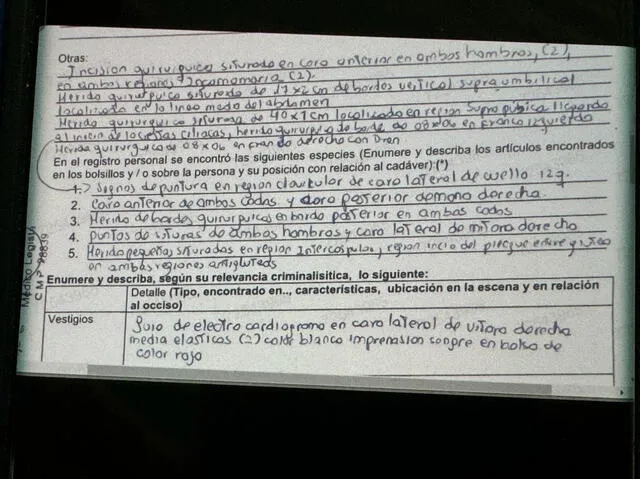 Otras:
Incision quirurquica siturado en cara anterior en ambos hombros, (2),
en ambas regiones (2).
Herida quirurquica siturado de 17x2 cm de bordes vertical supraumbilical
localizada en la linea media del abdomen
Herida quirurquica siturosa de 40x1cm localizado en region supra pubica llegando
al inicio de las crestas iliacas, herida quirurgica de borde de 08x06 en franco izquierdo
Herida quirurgica de 08x06 en franco derecho con Dren
En el registro personal se encontró las siguientes especies (Enumere y describa los artículos encontrados
en los bolsillos y / o sobre la persona y su posición con relación al cadáver):(*)
1.) Signos de puntura en region clavicular de cara lateral de cuello izq.
2. Cara anterior de ambos codos y dorso posterior de mano derecha.
3. Herida de bordes quirurquicas en borde posterior en ambos codos
4. puntos de suturas de ambos hombros y cara lateral de derecho
5. Herida pequeñas situradas en region Interescapular, region inicio del pliegue
en ambas regiones
Enumere y describa, según su relevancia criminalisitica, lo siguiente:
Detalle (Tipo, encontrado en.., características, ubicación en la escena y en relación
al occiso)
Vestigios
de electro cardiograma en cara lateral de derecha
media elasticas (2) color blanco sangre en bolsa de
color rojo
Médico Legista
CMP 28839